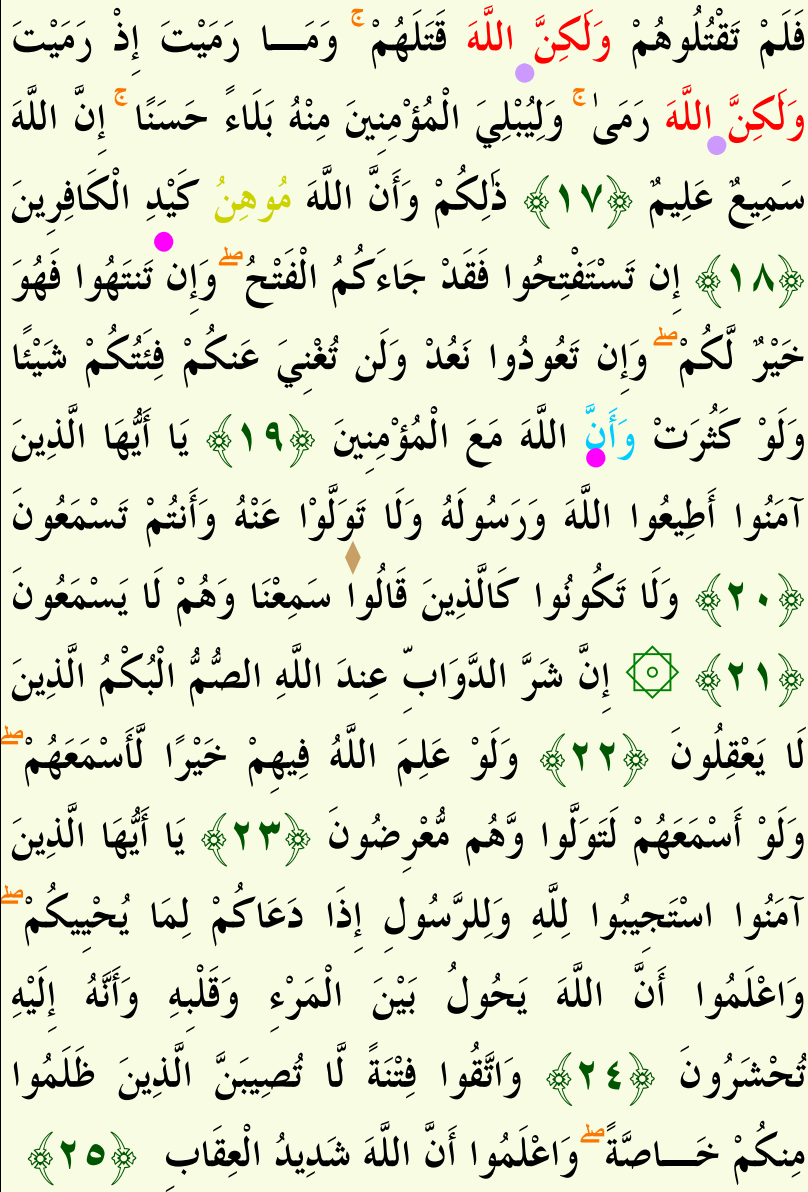 فَلَمْ تَقْتُلُوهُمْ وَلَكِنَّ اللَّهَ قَتَلَهُمْ ۚ وَمَـــا رَمَيْتَ إِذْ رَمَيْتَ
وَلَكِنَّ اللَّهَ رَمَىٰ ۚ وَلِيُبْلِيَ الْمُؤْمِنِينَ مِنْهُ بَلَاءً حَسَنًا ۚ إِنَّ اللَّهَ
سَمِيعٌ عَلِيمٌ ﴿١٧﴾ ذَٰلِكُمْ وَأَنَّ اللَّهَ مُوهِنُ كَيْدِ الْكَافِرِينَ
﴿١٨﴾ إِن تَسْتَفْتِحُوا فَقَدْ جَاءَكُمُ الْفَتْحُ ۖ وَإِن تَنتَهُوا فَهُوَ
خَيْرٌ لَّكُمْ ۖ وَإِن تَعُودُوا نَعُدْ وَلَن تُغْنِيَ عَنكُمْ فِئَتُكُمْ شَيْئًا
وَلَوْ كَثُرَتْ وَأَنَّ اللَّهَ مَعَ الْمُؤْمِنِينَ ﴿١٩﴾ يَا أَيُّهَا الَّذِينَ
آمَنُوا أَطِيعُوا اللَّهَ وَرَسُولَهُ وَلَا تَوَلَّوْا عَنْهُ وَأَنتُمْ تَسْمَعُونَ
﴿٢٠﴾ وَلَا تَكُونُوا كَالَّذِينَ قَالُوا سَمِعْنَا وَهُمْ لَا يَسْمَعُونَ
﴿٢١﴾ ۞ إِنَّ شَرَّ الدَّوَابِّ عِندَ اللَّهِ الصُّمُّ الْبُكْمُ الَّذِينَ
لَا يَعْقِلُونَ ﴿٢٢﴾ وَلَوْ عَلِمَ اللَّهُ فِيهِمْ خَيْرًا لَّأَسْمَعَهُمْ ۖ
وَلَوْ أَسْمَعَهُمْ لَتَوَلَّوا وَّهُم مُّعْرِضُونَ ﴿٢٣﴾ يَا أَيُّهَا الَّذِينَ
آمَنُوا اسْتَجِيبُوا لِلَّهِ وَلِلرَّسُولِ إِذَا دَعَاكُمْ لِمَا يُحْيِيكُمْ ۖ
وَاعْلَمُوا أَنَّ اللَّهَ يَحُولُ بَيْنَ الْمَرْءِ وَقَلْبِهِ وَأَنَّهُ إِلَيْهِ
تُحْشَرُونَ ﴿٢٤﴾ وَاتَّقُوا فِتْنَةً لَّا تُصِيبَنَّ الَّذِينَ ظَلَمُوا
مِنكُمْ خَـــاصَّةً ۖ وَاعْلَمُوا أَنَّ اللَّهَ شَدِيدُ الْعِقَابِ ﴿٢٥﴾